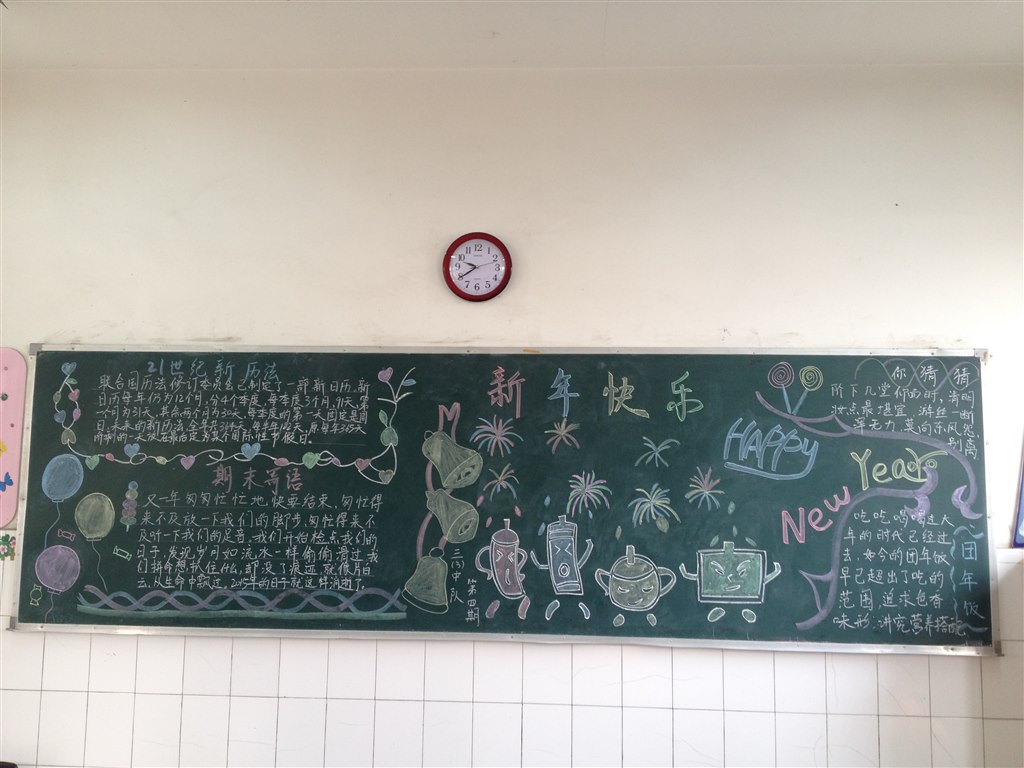 12
1
2
3
4
5
6
7
8
9
10
11
21世纪新历法
联合国历法修订委员会已制定了一部新日历,新
日历每年仍为12个月,分4个季度,每季度3个月,91天,第
一个月为31天,其余两个月为30天,每季度的第一天固定是星
期末写语
又一年匆匆忙忙地快要结束,匆忙得
来不及放一下我们的脚步,匆忙得来不
及听一下我们的足音,我们开始检点我们的
日子,发现岁月如流水一样偷偷滑过,我
们拼命想抓住什么,却没了痕迹,就像片白
云,从生命中飘过,2015年的日子就这样消逝了.
三(3)中队
第四期
新年快乐
HAPPY
New
Year
你猜猜
阶下儿童仰面时,清明
妆点最堪宜,游丝一断
浑无力,莫向东风怨
别离
团年饭
吃吃喝喝过大
年的时代已经过
去,如今的团年饭
早已超出了吃的
范围,追求色香
味形,讲究营养搭配